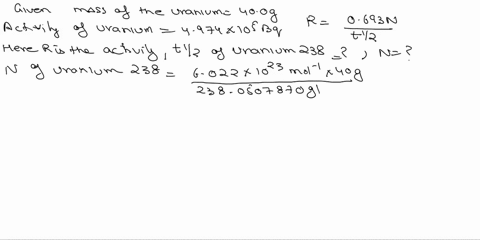 Given mass of the uranium = 40.0g
Activity of uranium = 4.974 × 10⁵ Bq R = 0.693N / t1/2
Here R is the activity, t1/2 of uranium 238 = ? , N = ?
N of uranium 238 = 6.022 × 10²³ mol⁻¹ × 40g
238.0507870g1